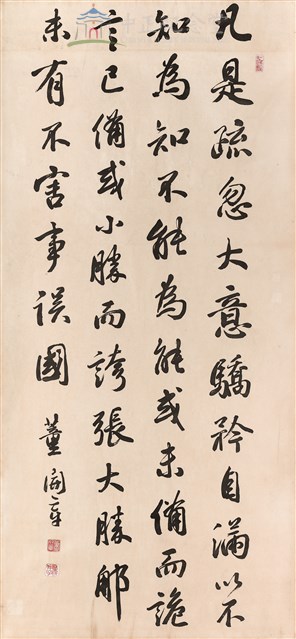 凡是疏忽大意驕矜自滿以不
知為知不能為能或未備而詭
言已備或小勝而誇張大勝那
未有不害事誤國
董開章